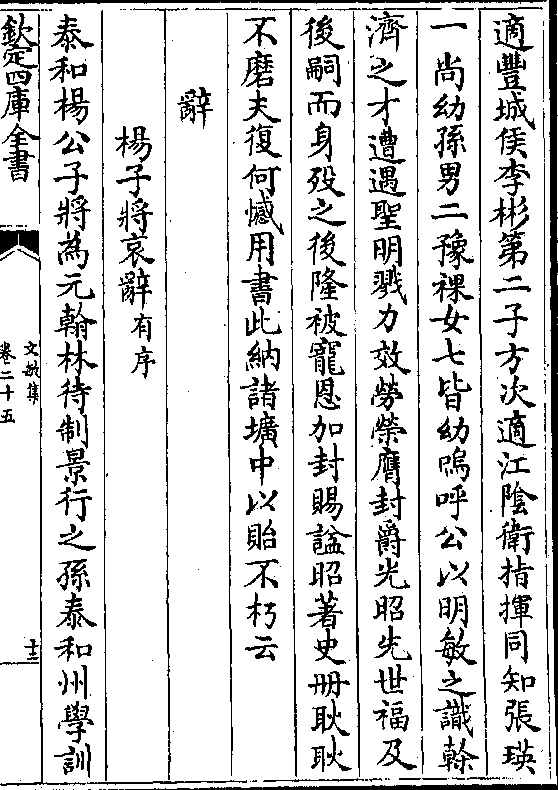 適豐城侯李彬第二子方次適江陰衛指揮同知張瑛
一尚幼孫男二豫祼女七皆幼嗚呼公以明敏之識幹
濟之才遭遇聖明戮力效勞榮膺封爵光昭先世福及
後嗣而身歿之後隆被寵恩加封賜諡昭著史冊耿耿
不磨夫復何憾用書此納諸壙中以貽不朽云
辭
楊子將哀辭有序
泰和楊公子將為元翰林待制景行之孫泰和州學訓
欽定四庫全書
文敏集
卷二十五
十三